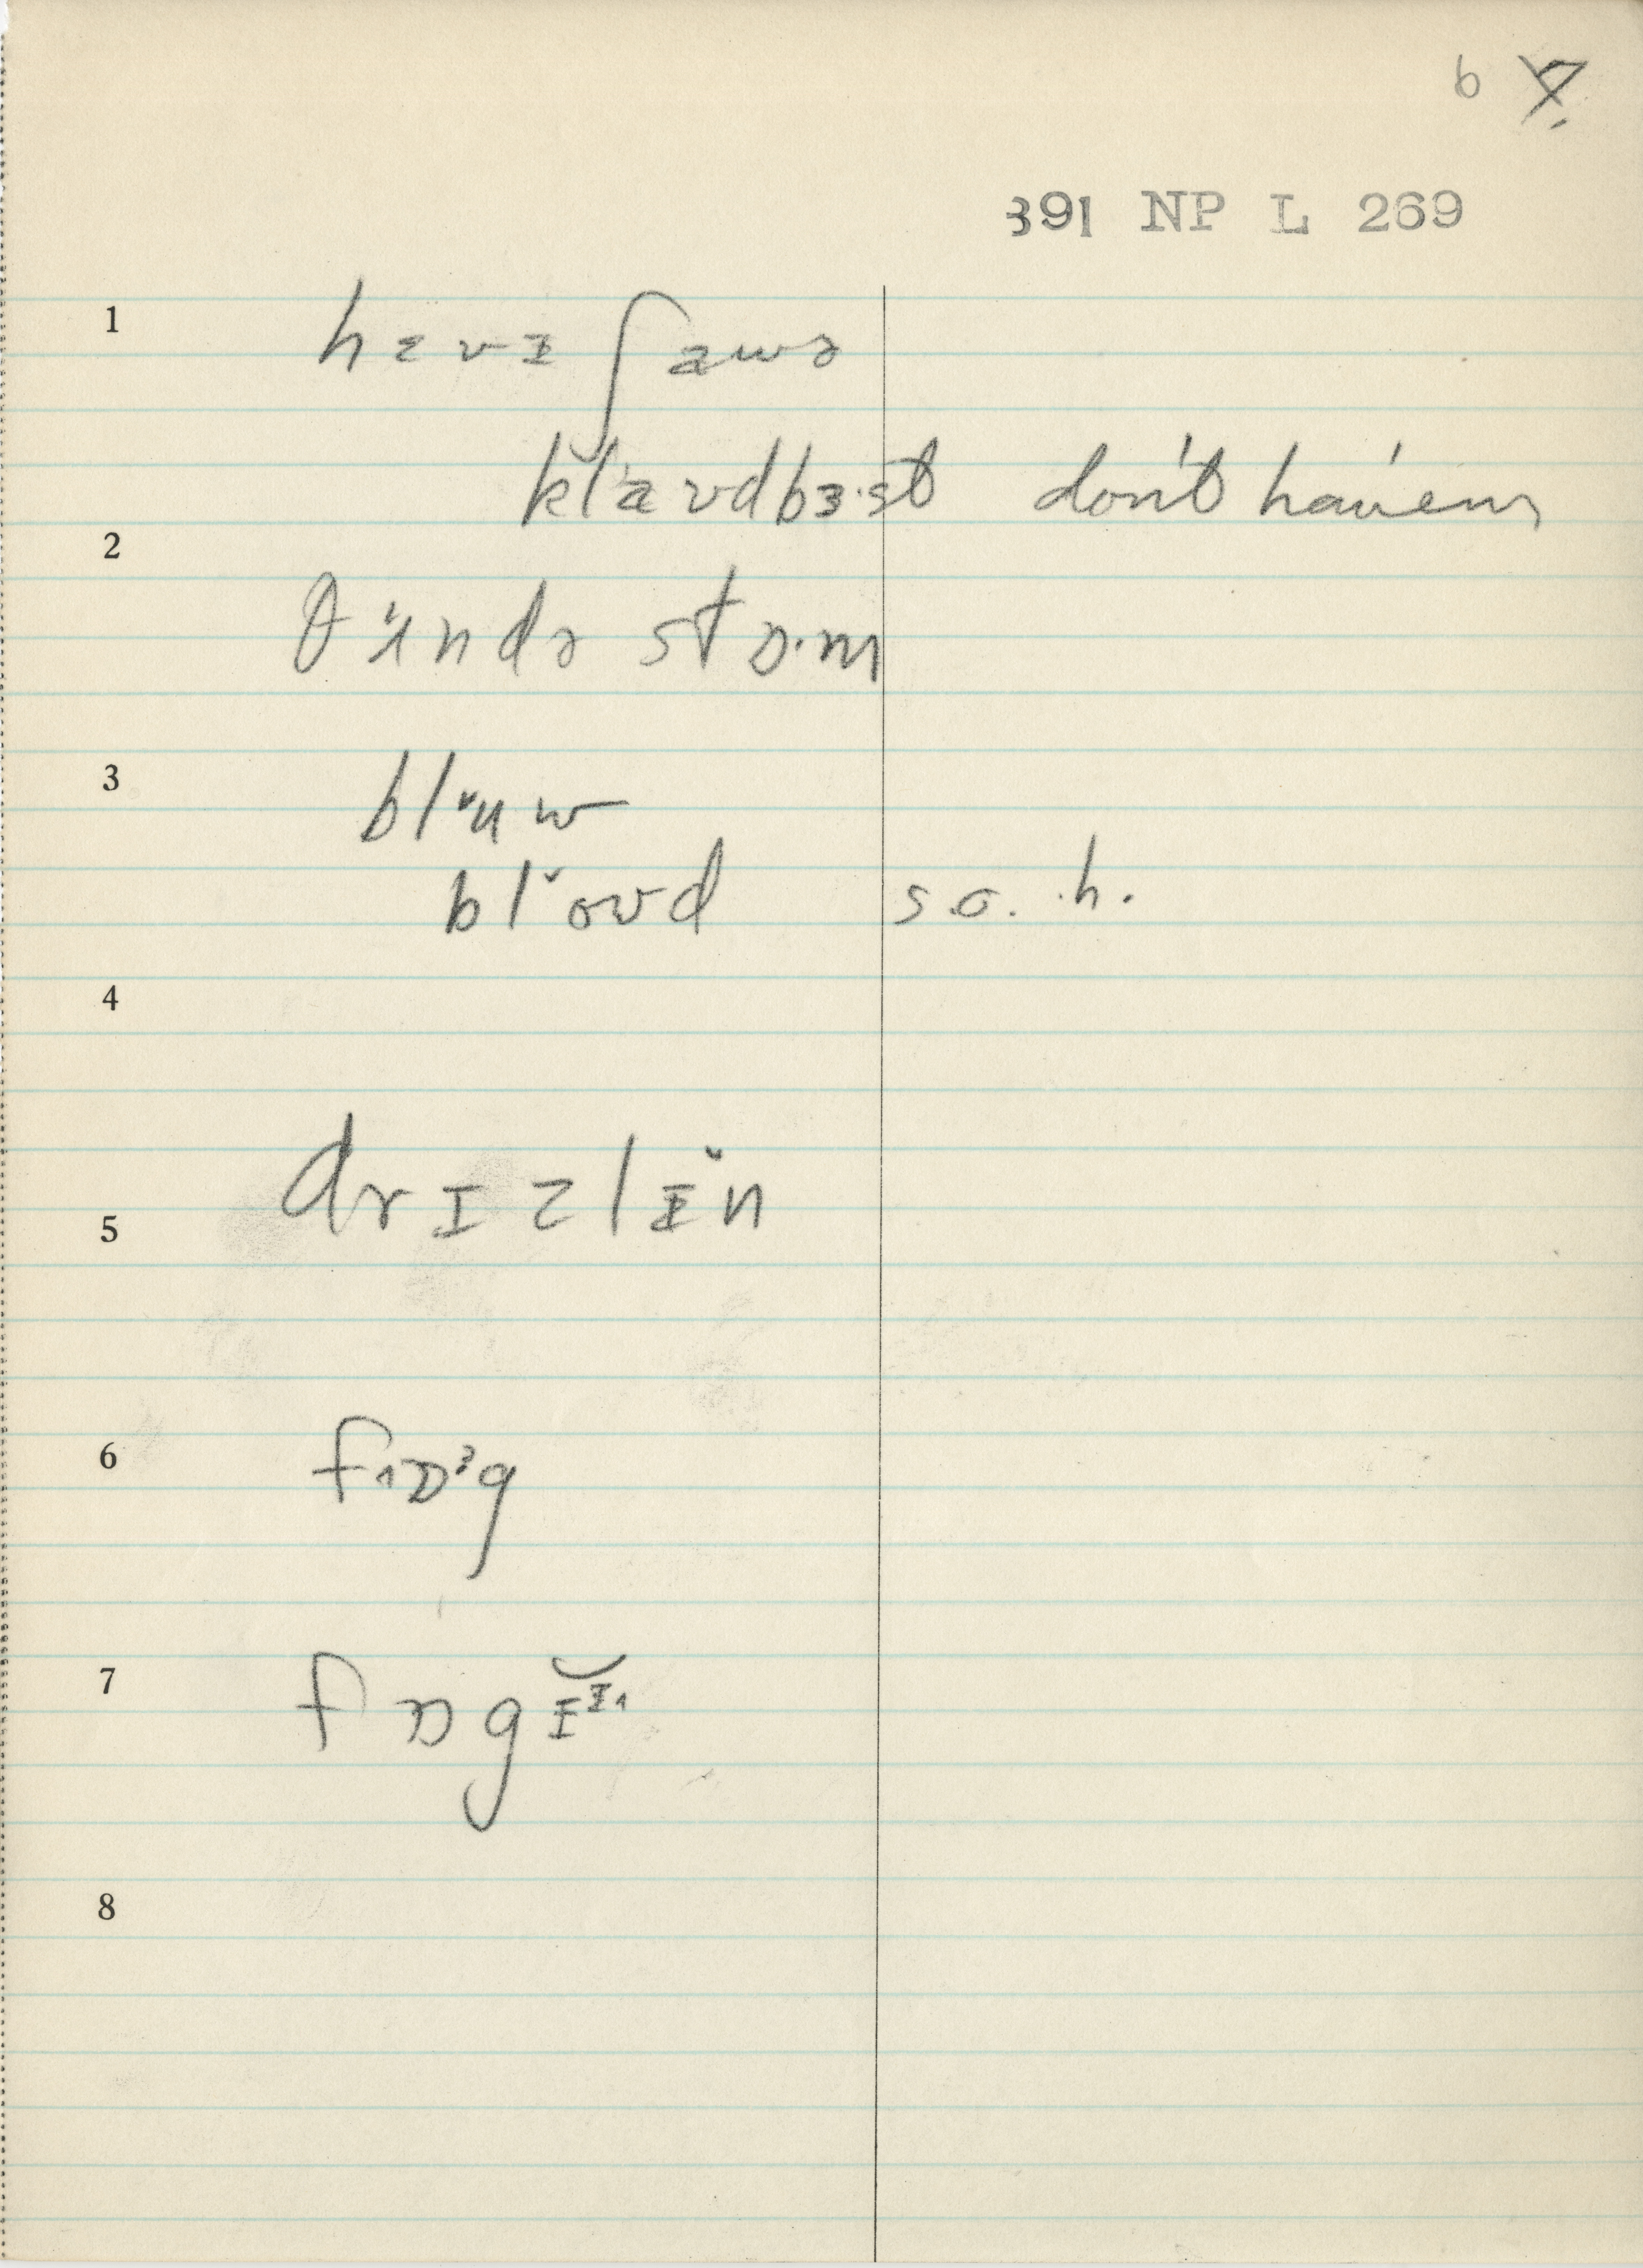 6 7.
391 NP L 269
1 hɛvɪ ʃawə
klavdbɜ·st don't have 'em
2 θʌndə stɒ·m
3 blʉw
blovd s.o. h.
4
drɪzlɪ̆n
5
6 fɒᵊg
7 fɒgɪ̆
8